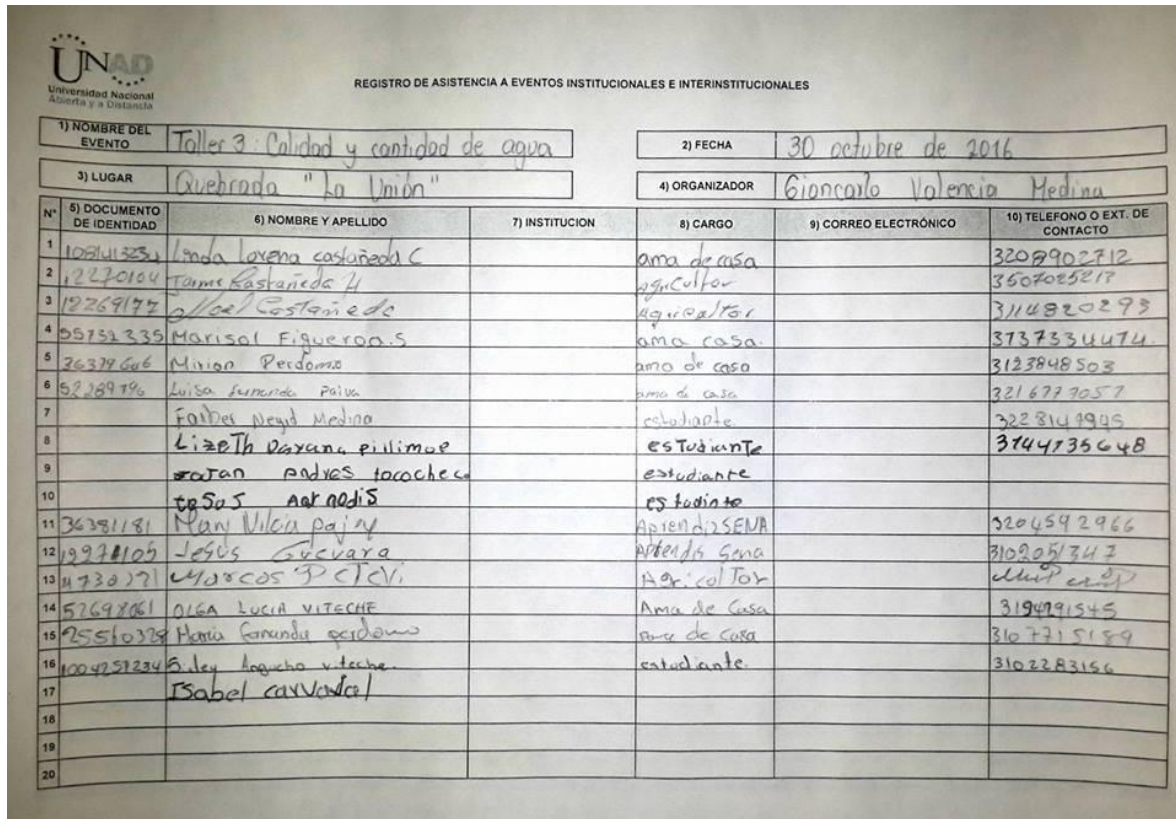 UNAD
Universidad Nacional
Abierta y a Distancia
REGISTRO DE ASISTENCIA A EVENTOS INSTITUCIONALES E INTERINSTITUCIONALES
1) NOMBRE DEL EVENTO Taller 3: Calidad y cantidad de agua 2) FECHA 30 octubre de 2016
3) LUGAR Quebrada "La Unión" 4) ORGANIZADOR Giancarlo Valencia Medina
N° 5) DOCUMENTO DE IDENTIDAD 6) NOMBRE Y APELLIDO 7) INSTITUCION 8) CARGO 9) CORREO ELECTRÓNICO 10) TELEFONO O EXT. DE CONTACTO
1 Linda Lorena castañeda C ama de casa 3208902712
2 12270104 Jaime Castañeda H agricultor 3507025213
3 12269177 Castañeda 3114820293
4 55132335 Marisol Figueroa.S ama casa. 3137334474.
5 36379606 Mirian Perdomo ama de casa 3123848503
6 52289796 Luisa fernanda Paiva ama de casa 3216777057
7 Neyid Medina estudiante
8 LizeTh Dayana pillimue esTudianTe 3144735648
9 andres estudiante
10
11 36381181 Mary AprendizSENA 3204592966
12 Jesús Guevara Sena 3102051347
13 Marcos AgricolTor
14 OLGA LUCIA VITECHE Ama de Casa 3194291545
15 Maria perdomo de casa 3107715189
16 1004251234 viteche. estudiante. 3102283156
17 Isabel
18
19
20